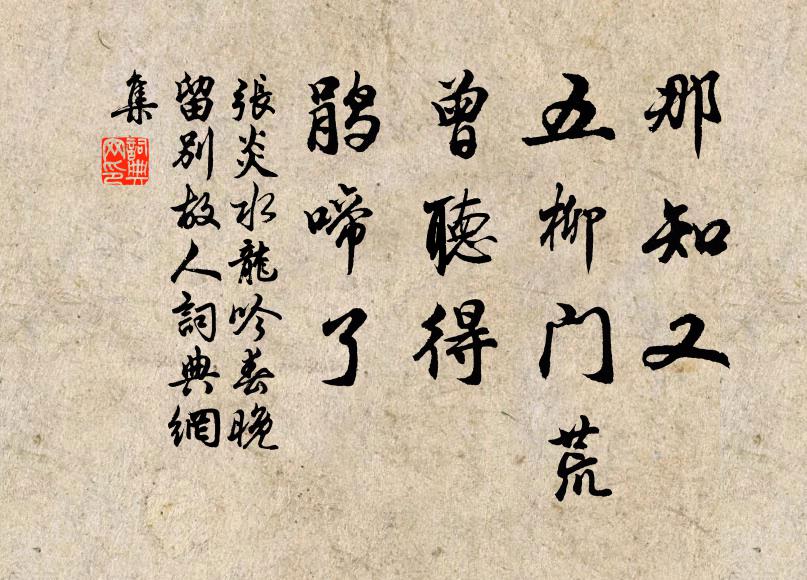 那知又
五柳门荒
曾聽得
鹃啼了
張炎水龍吟春晚
留別故人詞典網
集
詞典
网印